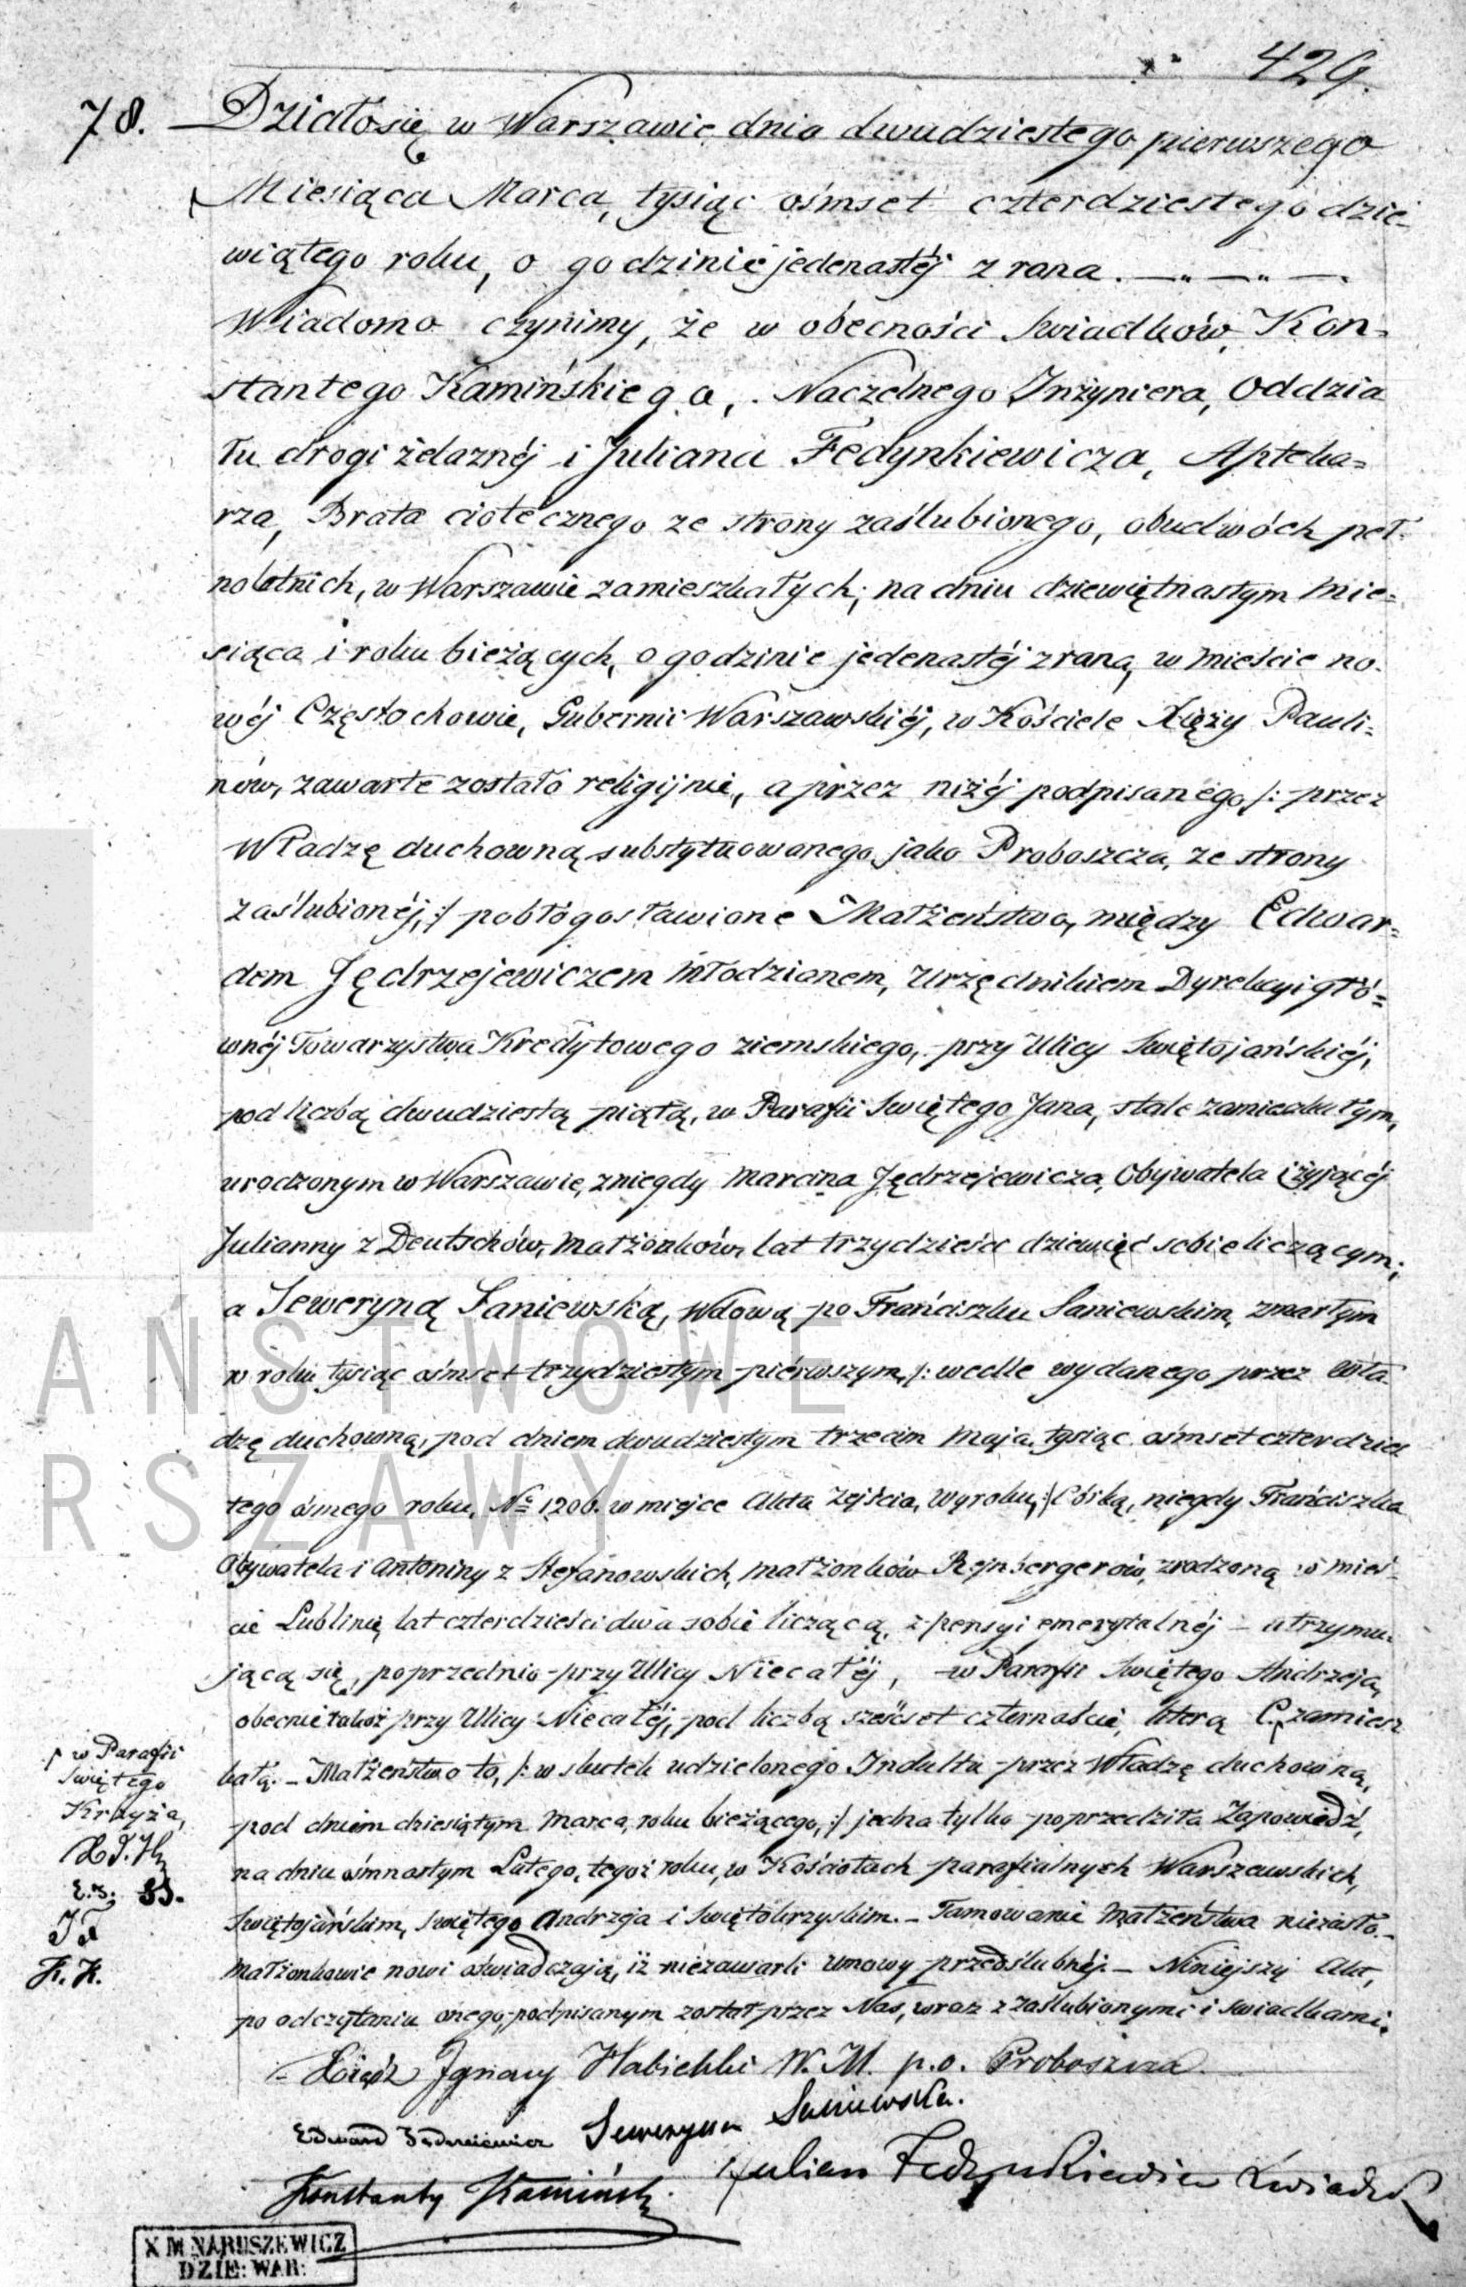 429.
78. Działo się w Warszawie dnia dwudziestego pierwszego
Miesiąca Marca, tysiąc ośmset czterdziestego dzie-
wiątego roku, o godzinie jedenastéj z rana. — „ — „ —
Wiadomo czynimy, że w obecności Swiadków, Kon=
stantego Kamińskiego, Naczelnego Inżyniera, Oddzia
łu drogi żelaznéj i Juliana Fedynkiewicza, Apteka=
rza, Brata ciotecznego ze strony zaślubionego, obudwóch peł-
noletnich, w Warszawie zamieszkałych; na dniu dziewiętnastym mie=
siąca i roku bieżących, o godzinie jedenastéj z rana, w mieście no-
wéj Częstochowie, Gubernii Warszawskiéj, w Kościele Xięży Pauli=
nów, zawarte zostało religijnie, a przez niżéj podpisanego /: przez
Władzę duchowną substytuowanego, jako Proboszcza, ze strony
zaślubionéj, :/ pobłogosławione Małżeństwo, między Edwar=
dem Jędrzejewiczem młodzianem, Urzędnikiem Dyrekcyi głó=
wnéj Towarzystwa Kredytowego ziemskiego, przy Ulicy Swiętojańskiéj,
pod liczbą dwudziestą piątą, w Parafii Swiętego Jana, stale zamieszkałym,
urodzonym w Warszawie, z niegdy Marcina Jędrzejewicza, Obywatela i żyjącéj
Julianny z Deutschów, małżonków, lat trzydzieści dziewięć sobie liczącym;
a Seweryną Saniewską, Wdową po Franciszku Saniewskim, zmarłym
w roku tysiąc ośmset trzydziestym piérwszym, /: wedle wydanego przez Wła-
dzę duchowną, pod dniem dwudziestym trzecim Maja, tysiąc ośmset czterdzies
tego ósmego roku, № 1206. w miejce Aktu Zejścia, Wyroku, :/ Córką, niegdy Franciszka
Obywatela i Antoniny z Stefanowskich, małżonków Rejnbergerów, zrodzoną w mieś-
cie Lublinie, lat czterdzieści dwa sobie liczącą, z pensyi emerytalnéj – utrzymu-
jącą się, poprzednio przy Ulicy Niecałéj, w Parafii Swiętego Andrzeja,
obecnie także przy Ulicy Niecałéj, pod liczbą sześćset czternaście, literą C, zamiesz
kałą. – Małżeństwo to, /: w skutek udzielonego Indultu przez Władzę duchowną,
pod dniem dziesiątym Marca, roku bieżącego, :/ jedna tylko poprzedziła Zapowiedź,
na dniu ośmnastym Lutego, tegoż roku, w Kościołach parafialnych Warszawskich,
Swiętojańskim, Swiętego Andrzeja i Swiętokrzyskim. – Tamowanie Małżeństwa niezaszło. –
Małżonkowie nowi oświadczają, iż niezawarli umowy przedślubnéj. – Niniejszy Akt,
po odczytaniu onego, podpisanym został przez Nas, wraz z zaślubionymi i swiadkami.
w Parafii
Swiętego
Krzyża,
X. I. H.
E. J. SS.
J F
K. K.
Xiądz Ignacy Habichki W. M. p. o. Proboszcza.
Edward Jędrzejewicz Seweryna Saniewska.
Konstanty Kamiński Julian Fedynkiewicz Swiadek
X M NARUSZEWICZ
DZIE: WAR:
AŃSTWOWE
RSZAWY